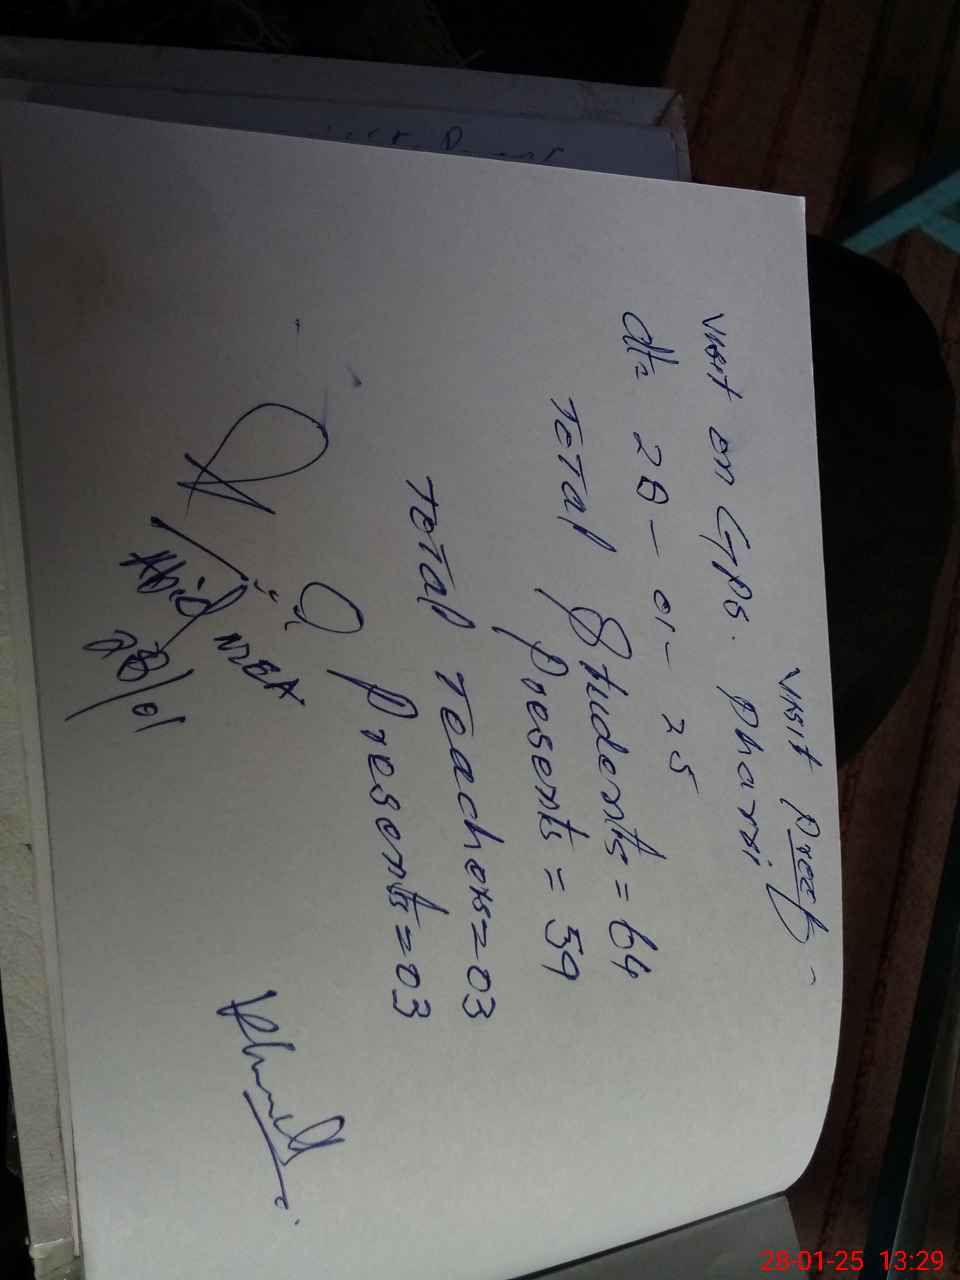 Visit Proof
Visit on GPS. Dharsi
dt= 28-01-25
Total Students = 64
Presents = 59
Total Teachers=03
Presents=03
Abid
28/01
28-01-25 13:29